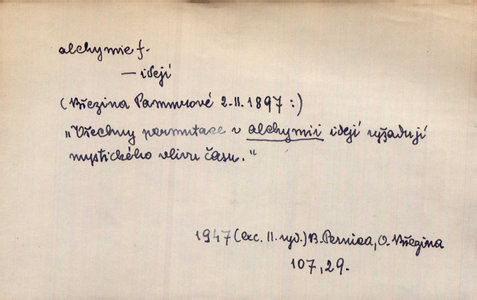 alchymie f.
— idejí
(Březina Pammrové 2.II.1897:)
„Všechny permutace v alchymii idejí vyžadují
mystického vlivu času.“
1947 (exc. II. vyd.) B. Pernica, O. Březina
107, 29.